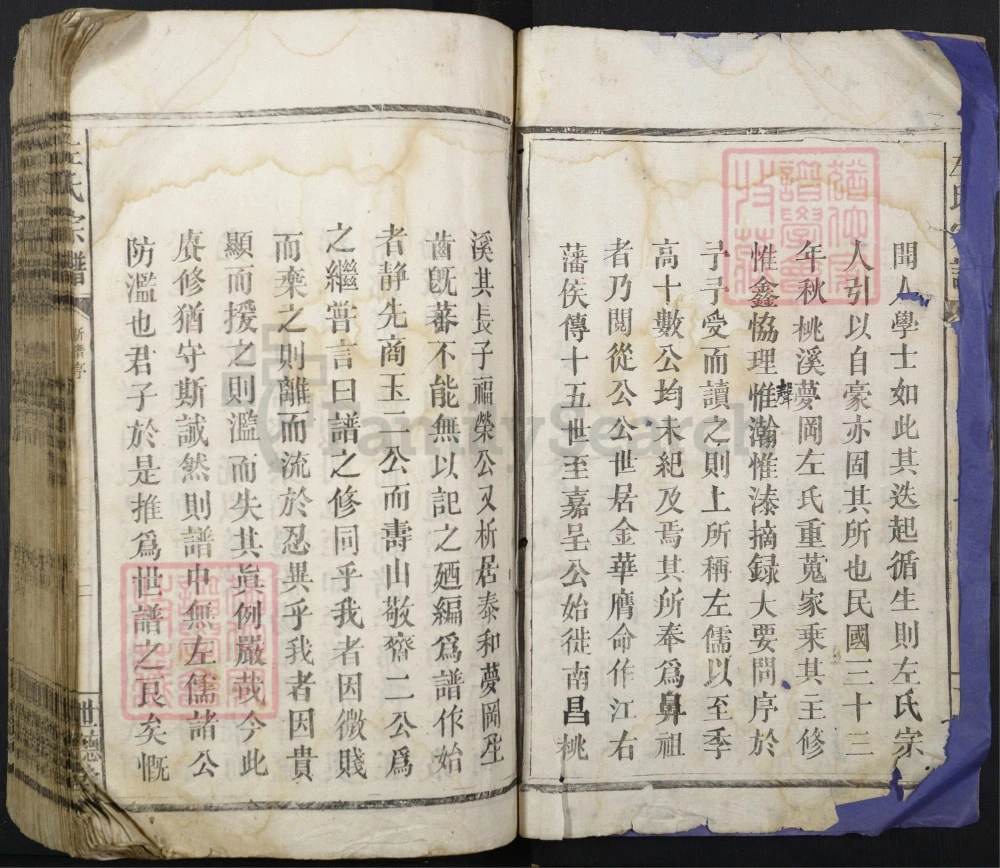 聞人學士如此其迭起循生則左氏宗
人引以自豪亦固其所也民國三十三
年秋桃溪夢岡左氏重蒐家乘其主修
惟鑫恊理惟瀚惟漆摘録大要問序於
聲
予予受而讀之則上所稱左儒以至季
高十數公均未紀及焉其所奉爲鼻祖
者乃閱從公公世居金華膺命作江右
藩侯傳十五世至嘉呈公始徙南昌桃
溪其長子福榮公又析居泰和夢岡生
齒旣蕃不能無以記之廼編爲譜作始
者静先商玉二公而壽山敬齋二公爲
之繼嘗言曰譜之修同乎我者因微賤
而棄之則離而流於忍異乎我者因貴
顯而援之則濫而失其眞例嚴哉今此
賡修猶守斯誡然則譜中無左儒諸公
防濫也君子於是推爲世譜之良矣慨
左氏宗譜
FamilySearch